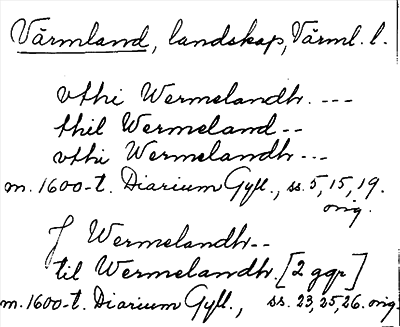 Värmland, landskap, Värml. l.
vthi Wermelandh. ---
thil Wermeland --
vthi Wermelandh. --
m. 1600-t. Diarium Gyll., ss. 5, 15, 19.
orig.
J Wermelandh --
til Wermelandh. [2 ggr]
m. 1600-t. Diarium Gyll., ss. 23, 25, 26. orig.